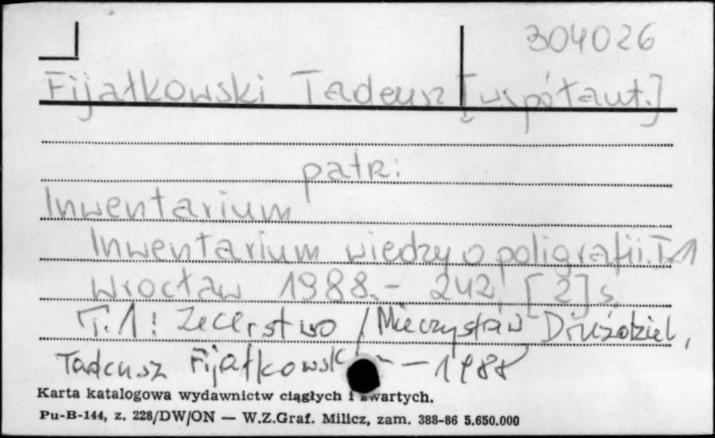 304026
Fijałkowski Tadeusz [współaut.]
patrz:
Inwentarium
Inwentarium wiedzy o poligrafii. T. 1
Wrocław 1988.- 242, [2] s.
T.1: Zecerstwo / Mieczysław Druździel,
Tadeusz Fijałkowski - 1988
Karta katalogowa wydawnictw ciągłych i zwartych.
Pu-B-144, z. 228/DW/ON — W.Z.Graf. Milicz, zam. 388-86 5.650.000